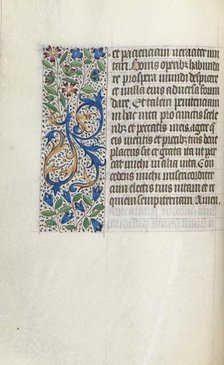 et pacienciam veraciter imi
tari. Bonis operibus habunda
re prospera mundi despicere
et nulla eius adversa formi
dare. Et talem penitenciam
in hac vita pro acceptis scele
ribus et peccatis meis agere
quod meritis et precibus tuis bene
placens sit et grata ita ut par
cat michi in alia vita Con
cedens michi misericorditer
cum electis tuis vitam et re
quiem sempiternam Amen.